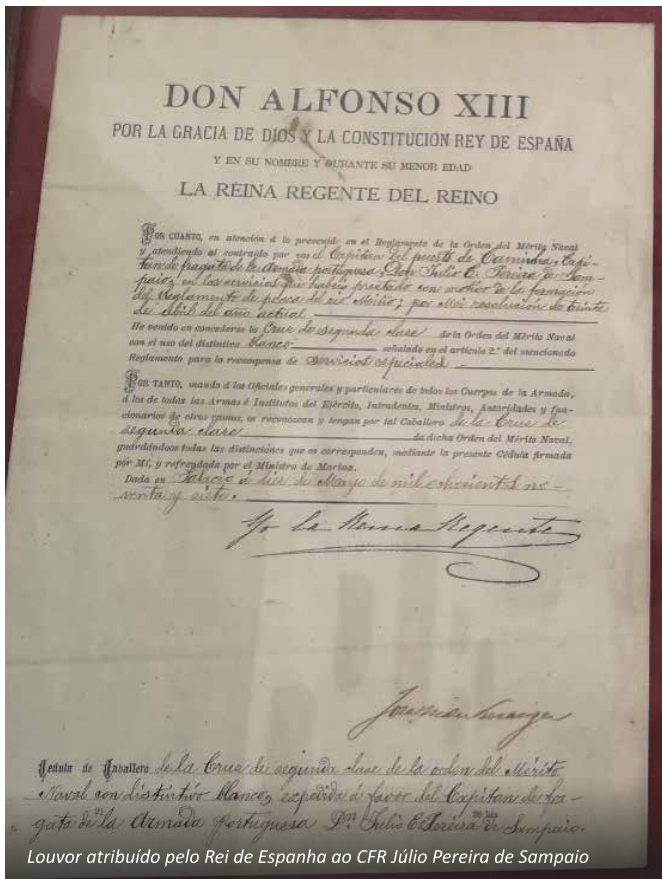 DON ALFONSO XIII
POR LA GRACIA DE DIOS Y LA CONSTITUCIÓN REY DE ESPAÑA
Y EN SU NOMBRE Y DURANTE SU MENOR EDAD
LA REINA REGENTE DEL REINO
POR CUANTO, en atención á lo prevenido en el Reglamento de la Orden del Mérito Naval
y atendiendo al contraído por vos el Capitan del puerto de Caminha, Capi-
tan de fragata de la Armada portuguesa Don Julio C. Pereira de Sam-
paio, en los servicios que habeis prestado con motivo de la formación
del Reglamento de pesca del río Miño; por Mi resolución de veinte
de Abril del año actual
He venido en concederos la Cruz de segunda clase de la Orden del Mérito Naval
con el uso del distintivo blanco señalada en el artículo 2.º del mencionado
Reglamento para la recompensa de servicios especiales.
POR TANTO, mando á los Oficiales generales y particulares de todos los Cuerpos de la Armada,
á los de todas las Armas é Institutos del Ejército, Intendentes, Ministros, Autoridades y fun-
cionarios de otros ramos, os reconozcan y tengan por tal Caballero de la Cruz de
segunda clase de dicha Orden del Mérito Naval,
guardándoos todas las distinciones que os corresponden, mediante la presente Cédula firmada
por Mí, y refrendada por el Ministro de Marina.
Dada en Palacio á diez de Mayo de mil ochocientos no-
venta y siete.
Yo la Reina Regente
Cedula de Caballero de la Cruz de segunda clase de la orden del Mérito
Naval con distintivo blanco, expedida á favor del Capitan de fra-
gata de la Armada portuguesa Dn Julio C. Pereira de Sampaio.
Louvor atribuído pelo Rei de Espanha ao CFR Júlio Pereira de Sampaio